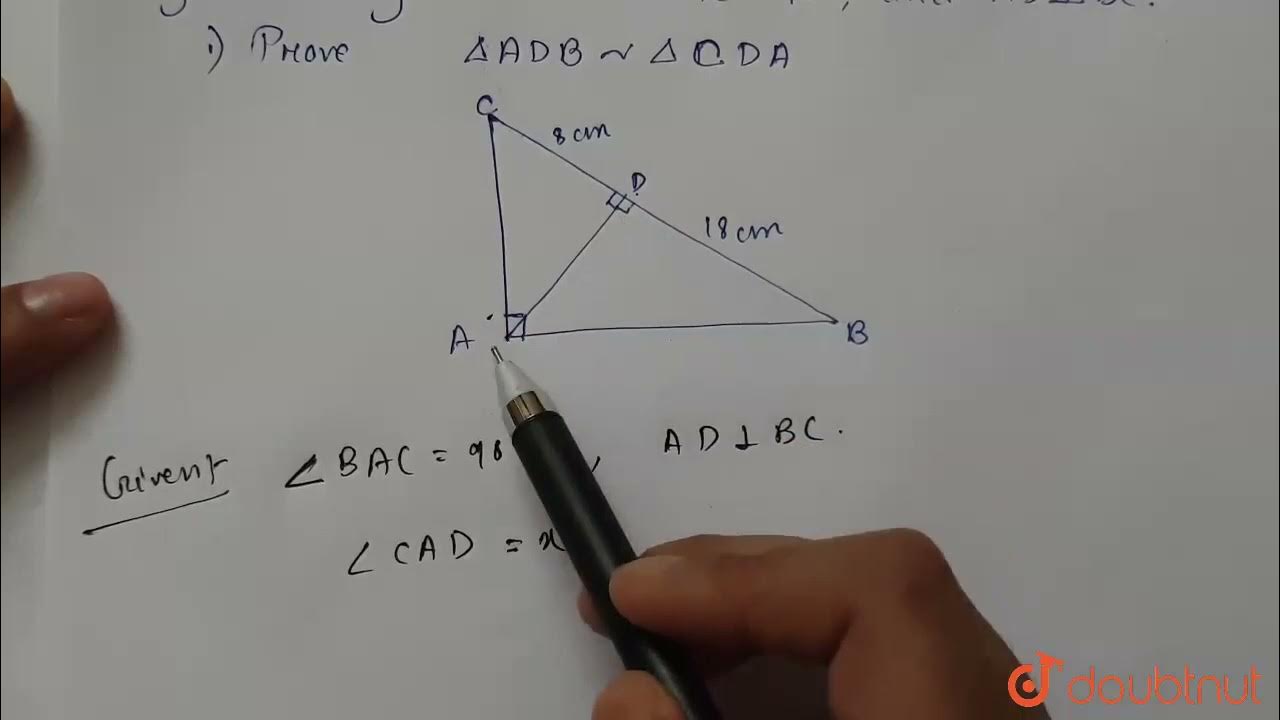 i) Prove △ADB ~ △CDA
C
8 cm
D
18 cm
A
B
Given ∠BAC = 90, AD⊥BC.
∠CAD = x
doubtnut